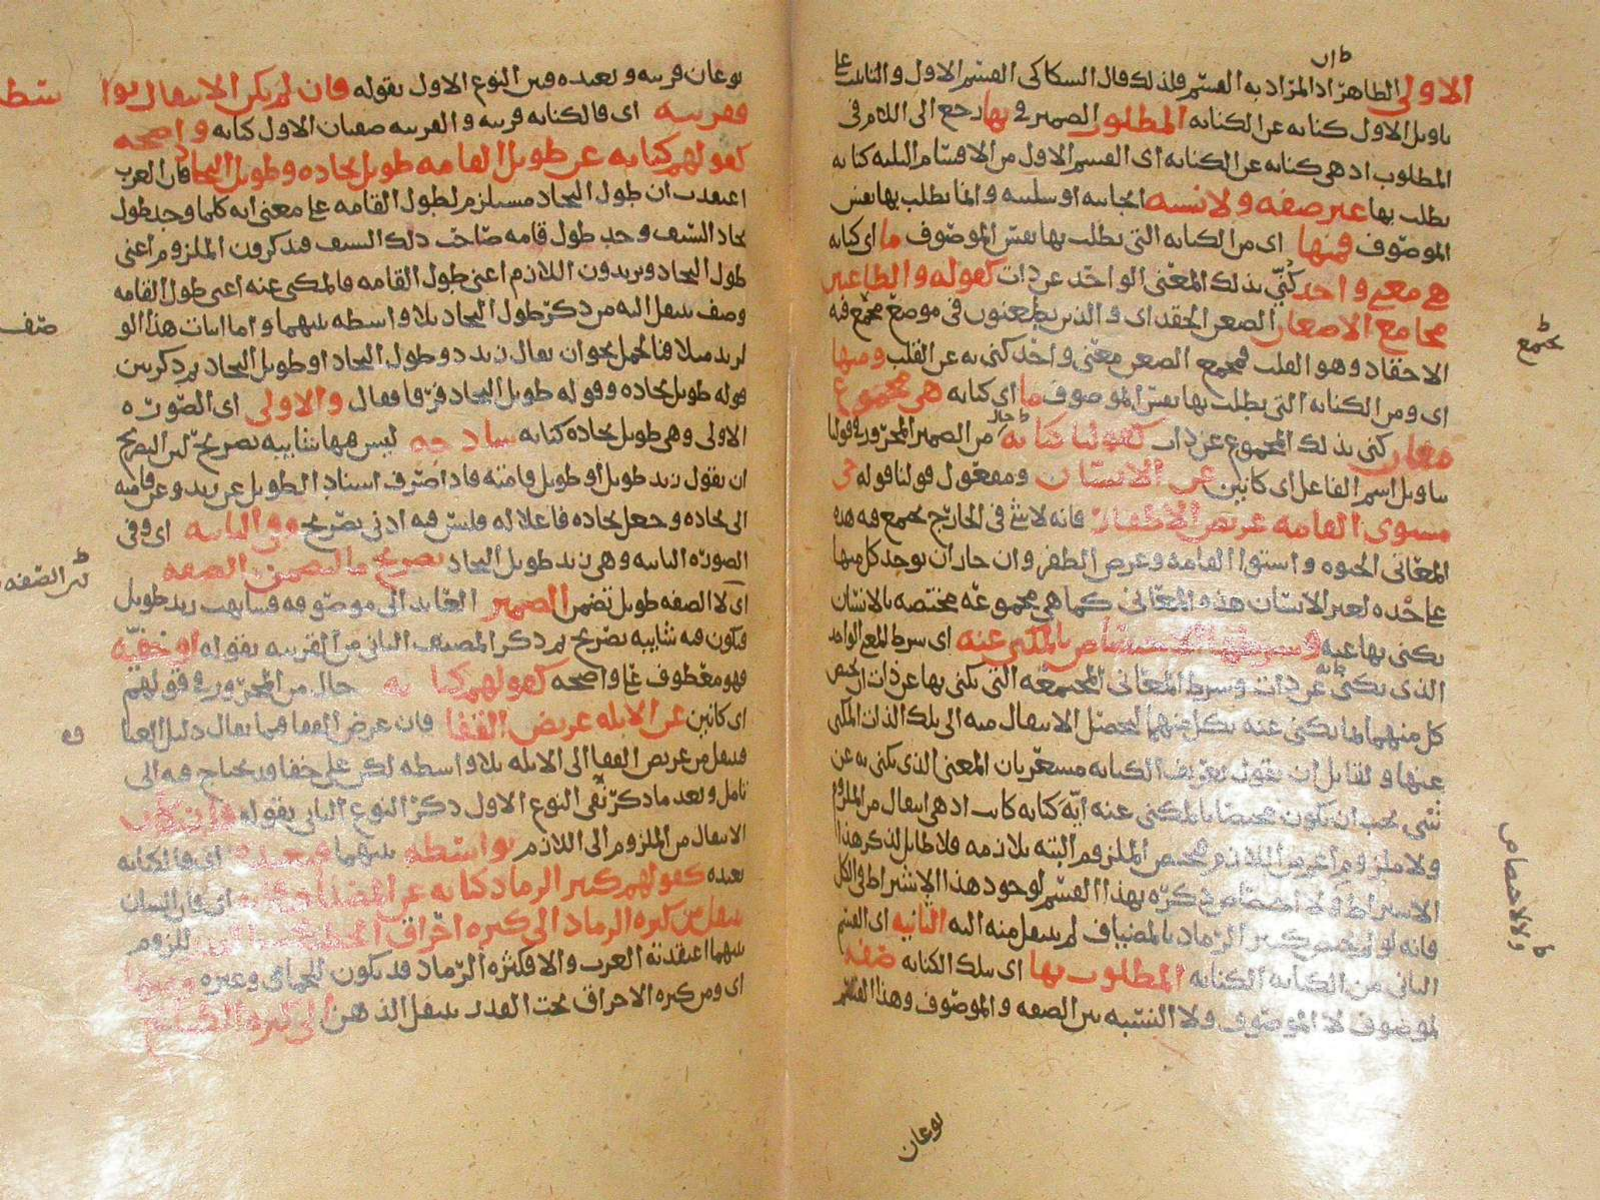 الاولى الظاهر اذ المراد به القسم فلذلك قال السكاكى القسم الاول والتانيث على
تاويل الاول كناية عن الكناية المطلوب الضمير فى بها رجع الى اللام فى
المطلوب اذ هى كناية عن الكناية اى القسم الاول من الاقسام الثلثة كناية
يطلب بها غير صفة ولا نسبة ايجابية او سلبية وانما يطلب بها نفس
الموصوف فمنها اى من الكناية التى يطلب بها نفس الموصوف ما اى كناية
هى معنى واحد كنى بذلك المعنى الواحد عن ذات كقوله والطاعنين
مجامع الاضغان الضغن الحقد اى والذين يطعنون فى موضع مجمع فيه
الاحقاد وهو القلب فمجمع الضغن معنى واحد كنى به عن القلب ومنها
اى ومن الكناية التى يطلب بها نفس الموصوف ما اى كناية هى مجموع
معان كنى بذلك المجموع عن ذات كقولنا كناية من الضمير المجرور فى قولنا
بتاويل اسم الفاعل اى كانين عن الانسان ومفعول قولنا قوله حى
مستوى القامة عريض الاظفار فانه لا شئ فى الخارج يجمع فيه هذه
المعانى الحيوة واستوا القامة وعرض الظفر وان جاز ان يوجد كل منها
على حده لغير الانسان هذه المعانى كما هى مجموعة مختصة بالانسان
يكنى بها عنه وشرطهما الاختصاص بالمكنى عنه اى شرط المعنى الواحد
الذى يكنى به عن ذات وشرط المعانى المجتمعة التى يكنى بها عن ذات ان يختص
كل منهما بما يكنى عنه بكل منهما ليحصل الانتقال منه الى تلك الذات المكنى
عنها ولقائل ان يقول تعريف الكناية مشعر بان المعنى الذى يكنى به عن
شئ يجب ان يكون مختصا بالمكنى عنه اية كناية كانت اذ هى انتقال من الملزوم
ولا ملزوم اعم من اللازم فيختص الملزوم البتة بلازمه فلا طايل لذكر هذا
الاشتراط ولا اختصاص ذكره بهذا القسم لوجود هذا الاشتراط فى الكل
فانه لو لم يختص كثير الرماد بالمضياف لم ينتقل منه اليه الثانية اى القسم
الثانى من الكناية الكناية المطلوب بها اى بتلك الكناية صفة
لموصوف لا الموصوف ولا النسبة بين الصفة والموصوف وهذا القسم
يجتمع
ولا لاختصاص
نوعان
نوعان قريبة وبعيدة فبين النوع الاول بقوله فان لم يكن الانتقال بوا
سطة
فقريبة اى فالكناية قريبة والقريبة صفتان الاول كناية واضحة
كقولهم كناية عن طويل القامة طويل نجاده وطويل النجاد فان العرب
اعتقدت ان طول النجاد مستلزم لطول القامة على معنى انه كلما وجد طول
نجاد السيف وجد طول قامة صاحب ذلك السيف فيذكرون الملزوم اعنى
طول النجاد ويريدون اللازم اعنى طول القامة فالمكنى عنه اعنى طول القامة
وصف ينتقل اليه من ذكر طول النجاد بلا واسطة بينهما واما اثبات هذا الو
صف
لزيد مثلا فبالحمل نحو ان يقال زيد ذو طول النجاد او طويل النجاد ثم ذكر بين
قوله طويل نجاده وقوله طويل النجاد فرقا فقال والاولى اى الصورة
الاولى وهى طويل نجاده كناية ساذجة ليس فيها شايبة تصريح لان التصريح
ان يقول زيد طويل او طويل قامته فاذا صرف اسناد الطويل عن زيد وعن قامته
الى نجاده وجعل نجاده فاعلا له فليس فيه ادنى تصريح وفى الثانية اى وفى
الصورة الثانية وهى زيد طويل النجاد تصريح ما لتضمن الصفة
اى لان الصفة طويل تضمن الضمير العايد الى موصوفه فشابهت زيد طويل
فيكون فيه شايبة تصريح ثم ذكر المصنف الثانى من القريبة بقوله او خفية
فهو معطوف على واضحة كقولهم كناية حال من المجرور فى قولهم
اى كانين عن الابله عريض القفا فان عرض القفا فيما يقال دليل الغبا
وة
فينتقل من عريض القفا الى الابله بلا واسطة لكن على خفا قد يحتاج فيه الى
تامل وبعد ما ذكر نفى النوع الاول ذكر النوع الثانى بقوله فان كان
الانتقال من الملزوم الى اللازم بواسطة بينهما فبعيدة اى فالكناية
بعيدة كقولهم كثير الرماد كناية عن المضياف
ينتقل من كثرة الرماد الى كثرة احراق الحطب للزوم
بينهما اعتقدته العرب والا فكثرة الرماد قد يكون للحمامى وغيره ومنها
اى ومن كثرة الاحراق تحت القدر ينتقل الذهن الى كثرة الطبايخ